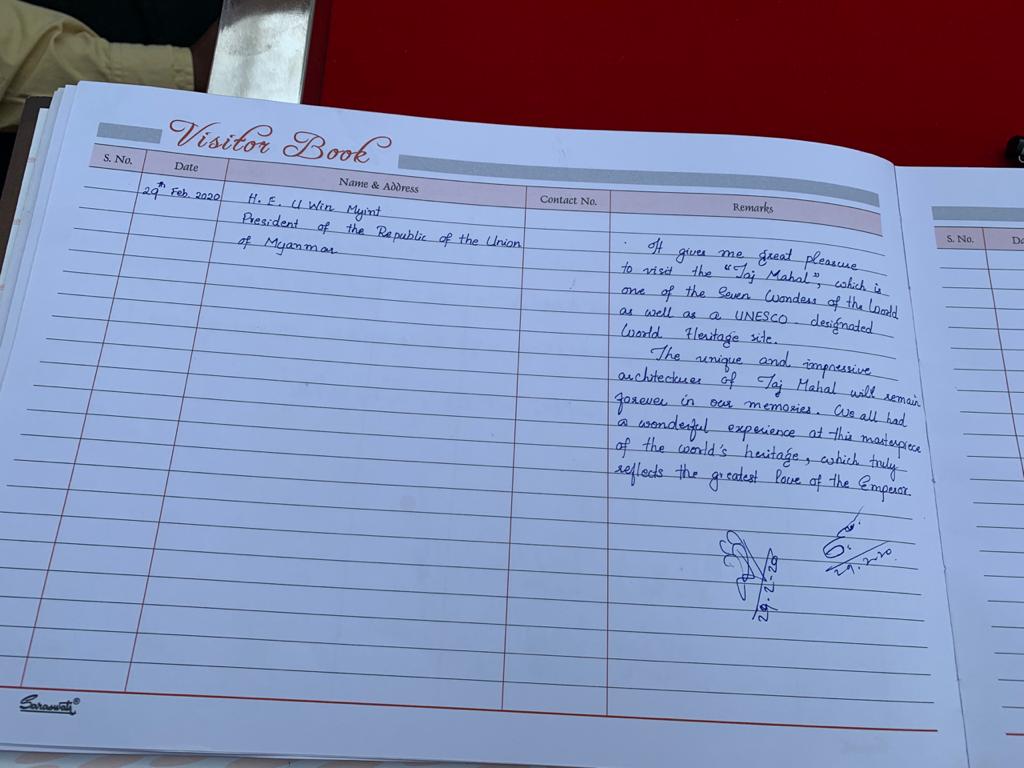 Visitor Book
S. No. Date Name & Address Contact No. Remarks
29th Feb. 2020
H. E. U Win Myint
President of the Republic of the Union
of Myanmar
It gives me great pleasure
to visit the "Taj Mahal", which is
one of the Seven Wonders of the World
as well as a UNESCO designated
World Heritage site.
The unique and impressive
architectures of Taj Mahal will remain
forever in our memories. We all had
a wonderful experience at this masterpiece
of the world's heritage, which truly
reflects the greatest love of the Emperor.
29.2.20
29.2.20.
Saraswati®
S. No.